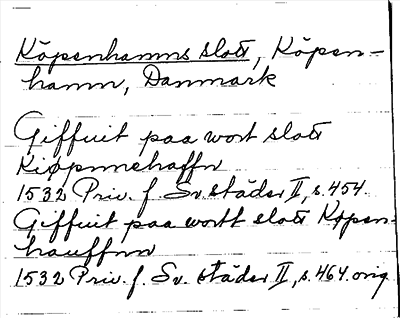 Köpenhamns slott, Köpen-
hamn, Danmark
Giffuit paa wort slott
Kiøpnnehaffn
1532 Priv. f. Sv. städer II, s. 454.
Giffuit paa wortt slott Køpen-
hauffnn
1532 Priv. f. Sv. städer II, s. 464. orig